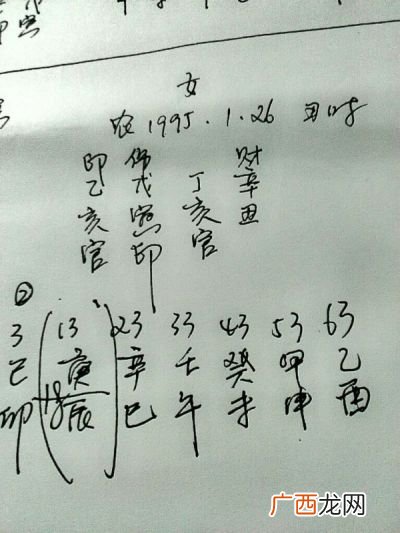 女
农1995.1.26 丑时
印乙亥官
伤戊寅印
丁亥官
财辛丑
②
3 13 23 33 43 53 63
己 庚 辛 壬 癸 甲 乙
卯 18 辰 巳 午 未 申 酉
广西龙网